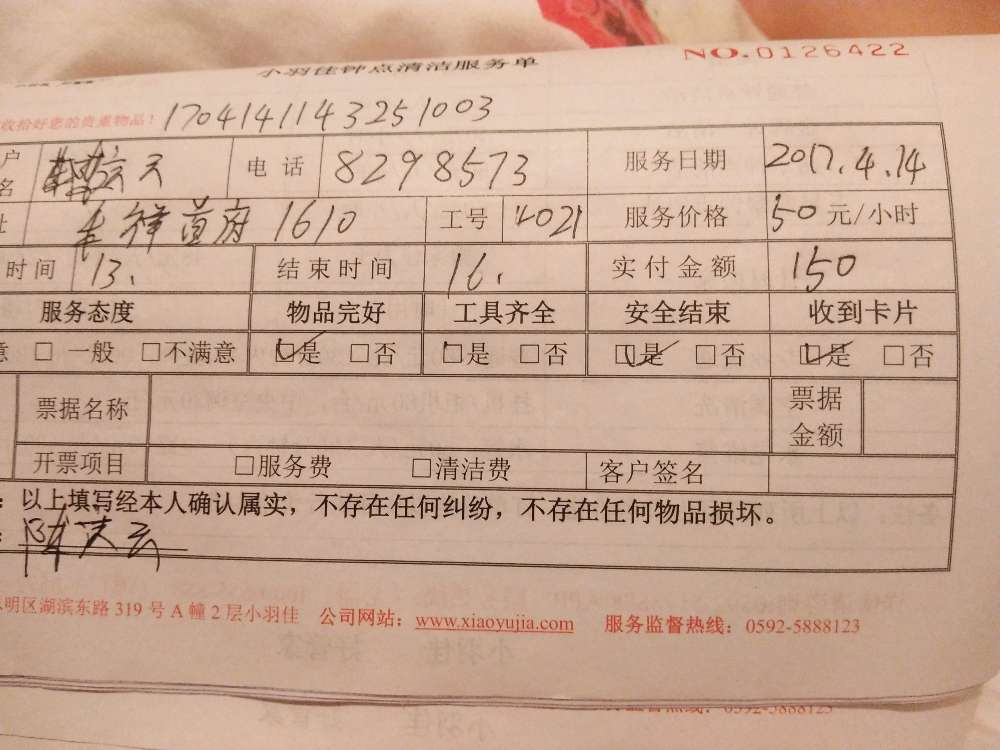 NO.0126422
小羽佳钟点清洁服务单
收拾好您的贵重物品! 1704141143251003
户名 电话 8298573 服务日期 2017.4.14
址 首府 1610 工号 4021 服务价格 50 元/小时
时间 13. 结束时间 16. 实付金额 150
服务态度 物品完好 工具齐全 安全结束 收到卡片
意 □ 一般 □不满意 □是 □否 □是 □否 □是 □否 □是 □否
票据名称 票据金额
开票项目 □服务费 □清洁费 客户签名
: 以上填写经本人确认属实，不存在任何纠纷，不存在任何物品损坏。
明区湖滨东路 319 号 A 幢 2 层小羽佳 公司网站: www.xiaoyujia.com 服务监督热线: 0592-5888123